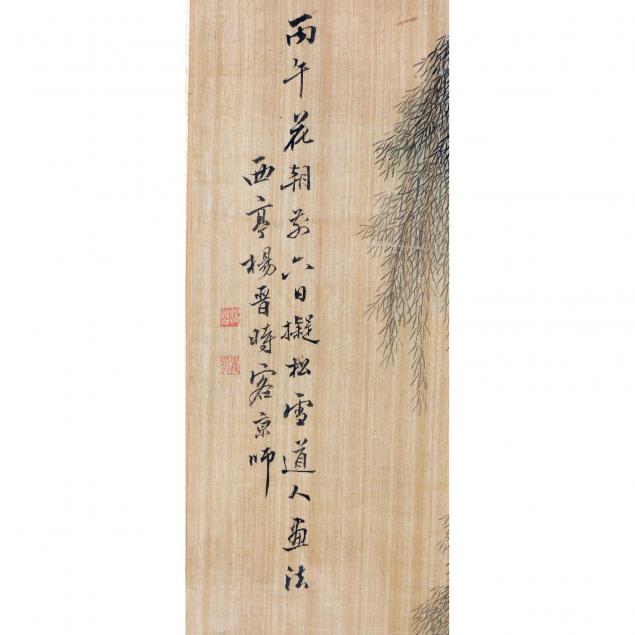 丙午花朝前六日擬松雪道人畫法
西亭楊晉時客京師